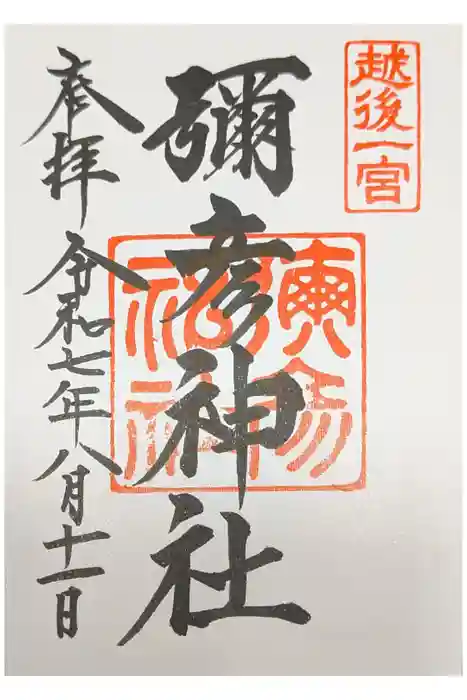 越後一宮
彌彦神社
奉拝 令和七年八月十一日